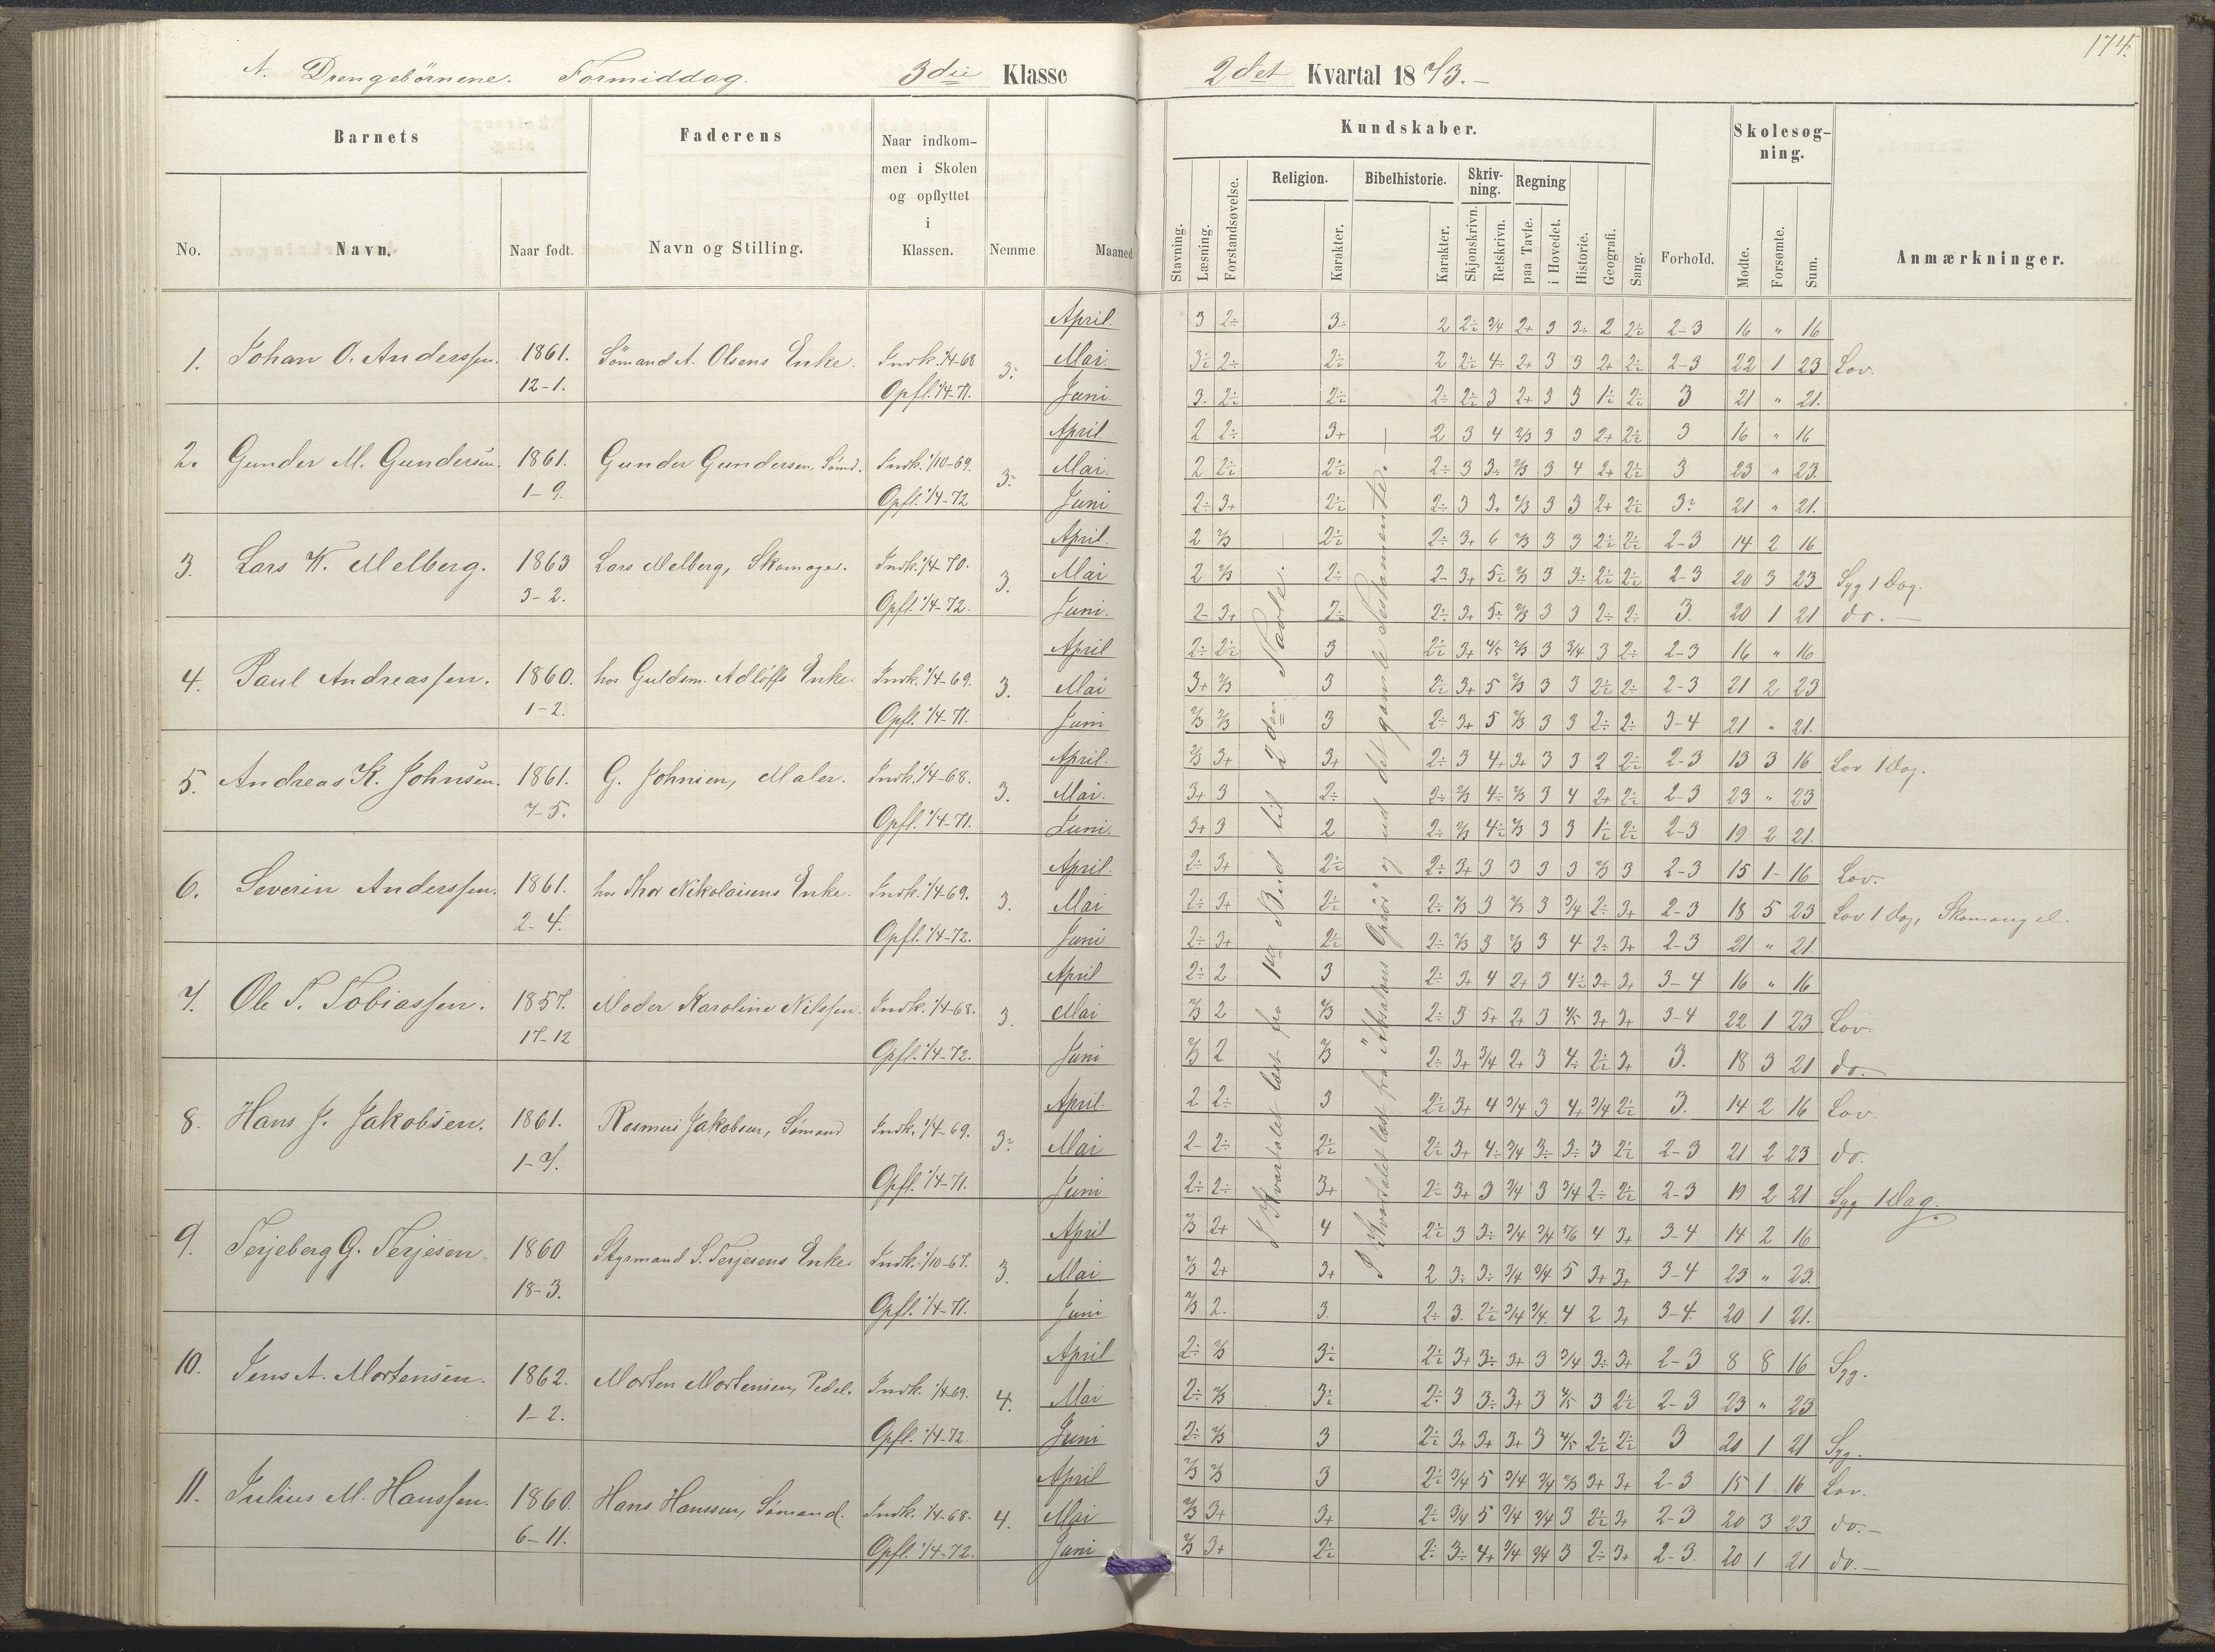 174.
A. Drengebörnene. Formiddag. 3die Klasse 2det Kvartal 1873.-
Barnets Faderens Naar indkommen i Skolen og opflyttet i Klassen. Nemme Maaned
No. Navn. Naar født. Navn og Stilling.
Kundskaber. Skolesøgning.
Religion. Bibelhistorie. Skrivning. Regning
Stavning. Læsning. Forstandsøvelse. Karakter. Karakter. Skjønskrivn. Retskrivn. paa Tavle. i Hovedet. Historie. Geografi. Sang. Forhold. Mødte. Forsømte. Sum. Anmærkninger.
April. 3 2÷ 3÷ 2 2÷ 3/4 2+ 3 3÷ 2 2÷ 2-3 16 " 16
1. Johan O. Anderssen. 1861. Sömand A. Olsens Enke. Indk. 1/4-68 3. Mai. 3÷ 2÷ 2÷ 2 2÷ 4÷ 2+ 3 3 2+ 2÷ 2-3 22 1 23 Lov.
12-1. Opfl. 1/4-71. Juni. 3. 2÷ 2÷ 2÷ 2÷ 3 2+ 3 3 1÷ 2÷ 3 21 " 21.
April 2 2÷ 3+ 2 3 4 2/3 3 3 2+ 2÷ 3 16 " 16
2. Gunder M. Gundersen. 1861. Gunder Gundersen, Sömd. Indk. 1/10-69. 3. Mai. 2 2÷ 2÷ 2÷ 3 3÷ 2/3 3 4 2+ 2÷ 3 23 " 23.
1-9. Opfl. 1/4-72 Juni 2÷ 3+ 2÷ 2÷ 3 3+ 2/3 3 3 2+ 2÷ 3 21 " 21.
April. 2 2/3 2÷ 2÷ 3+ 6 2/3 3 3 2÷ 2÷ 2-3 14 2 16
3. Lars W. Melberg. 1863 Lars Melberg, Skomager. Indk. 1/4-70. 3. Mai 2 2/3 2÷ 2- 3+ 5÷ 2/3 3 3÷ 2÷ 2÷ 2-3 20 3 23 Syg 1 Dag.
3-2. Opfl. 1/4-72. Juni. 2- 3+ 2÷ 2÷ 3+ 5÷ 2/3 3 3 2÷ 2÷ 3. 20 1 21 do.-
April 2÷ 2÷ 3 2÷ 3+ 4/5 2/3 3 3/4 3 2÷ 2-3 16 " 16
4. Paul Andreassen. 1860. hos Guldsm. Adlöffs Enke. Indk. 1/4-69. 3. Mai 3+ 2/3 3 2÷ 3+ 5 2/3 3 3 2÷ 2÷ 2-3 21 2 23
1-2. Opfl. 1/4-71. Juni 2/3 2/3 3 2÷ 3+ 5 2/3 3 3 2÷ 2÷ 3-4 21 " 21.
April. 2/3 3+ 3+ 2÷ 3 4+ 3+ 3 3 2 2÷ 2-3 13 3 16 Lov 1 Dag.
5. Andreas K. Johnsen. 1861. G. Johnsen, Maler. Indk. 1/4-68. 3. Mai. 3+ 3 2÷ 2÷ 2/3 4÷ 2/3 3 4 2+ 2÷ 2-3 23 " 23
7-5. Opfl. 1/4-71. Juni. 3+ 3 2 2÷ 2/3 4÷ 2/3 3 3 1÷ 2÷ 2-3 19 2 21.
April. 2÷ 3+ 2÷ 2÷ 3+ 3 3 3 3 2/3 3 2-3 15 1- 16 Lov.
6. Severin Anderssen. 1861. hos Thor Nikolaisens Enke. Indk. 1/4-69. 3. Mai 2÷ 3+ 2÷ 2÷ 2/3 3 2/3 3 3/4 2÷ 3+ 2-3 18 5 23 Lov 1 Dag, Skomangel.
2-4. Opfl. 1/4-72. Juni 2÷ 3+ 2÷ 2÷ 2/3 3 2/3 3 4 2÷ 3+ 2-3 21 " 21.
April 2÷ 2 3 2÷ 3+ 4 2+ 3 4÷ 3÷ 3+ 3-4 16 " 16
7. Ole T. Tobiassen. 1857. Moder Karoline Nilssen. Indk. 1/4-68. 3. Mai 2/3 2 2/3 2÷ 3 5+ 2+ 3 4/5 3+ 3+ 3-4 22 1 23 Lov.
17-12 Opfl. 1/4-72. Juni 2/3 2 2/3 2÷ 3+ 3/4 2+ 3 4÷ 2÷ 3+ 3. 18 3 21 do.
April. 2 2÷ 3 2÷ 3+ 4 3/4 3 4+ 3/4 2÷ 3. 14 2 16 Lov.
8. Hans J. Jakobsen. 1861. Rasmus Jakobsen, Sömand Indk. 1/4-69. 3. Mai 2- 2÷ 2÷ 2÷ 3+ 4÷ 3/4 3÷ 3÷ 3 2÷ 2-3 21 2 23 do.
1-7. Opfl. 1/4-71. Juni 2÷ 2÷ 3+ 2÷ 3+ 3 3/4 3 3/4 2÷ 2÷ 2-3 19 2 21 Syg 1 Dag.
April 2/3 2+ 4 2÷ 3 3÷ 3/4 3/4 5/6 4 3+ 3-4 14 2 16
9. Terjeberg G. Terjesen 1860 Styrmand S. Terjesens Enke. Indk. 1/10-67. 3. Mai 2/3 2+ 3+ 2 3÷ 3÷ 3/4 3/4 5 3+ 3+ 3-4 23 " 23.
18-3. Opfl. 1/4-71. Juni 2/3 2. 3. 2÷ 3. 2÷ 3/4 3/4 4 2 3+ 3-4. 20 1 21.
April 2÷ 2/3 3÷ 2÷ 3+ 3÷ 3+ 3 3/4 3÷ 3+ 2-3 8 8 16 Syg.
10. Jens A. Mortensen. 1862. Morten Mortensen, Pedel. Indk. 1/4-69. 4. Mai 2÷ 2/3 3÷ 2÷ 3 3÷ 3+ 3 4/5 3 2÷ 2-3 23 " 23
1-2. Opfl. 1/4-72. Juni 2÷ 2/3 3 2÷ 3+ 3+ 3+ 3 4/5 2÷ 2÷ 3 20 1 21 Syg.
April 2/3 2/3 3 2÷ 3/4 5 3/4 3/4 2/3 3+ 3+ 2-3 15 1 16 Lov.
11. Julius M. Hanssen. 1860. Hans Hanssen, Sömand. Indk. 1/4-68. 4. Mai 2/3 3+ 3+ 2÷ 3/4 5 3/4 3/4 3 2÷ 3+ 2-3 20 3 23 do.-
6-11. Opfl. 1/4-72. Juni 2/3 3+ 2÷ 2÷ 3÷ 4+ 3/4 3/4 3 2÷ 3+ 2-3. 20 1 21 do.-
I Kvartalet læst fra 1ste Bud til 2den Tavle.
I Kvartalet læst fra "Absalons Oprör" og ud det gamle Testamente.-